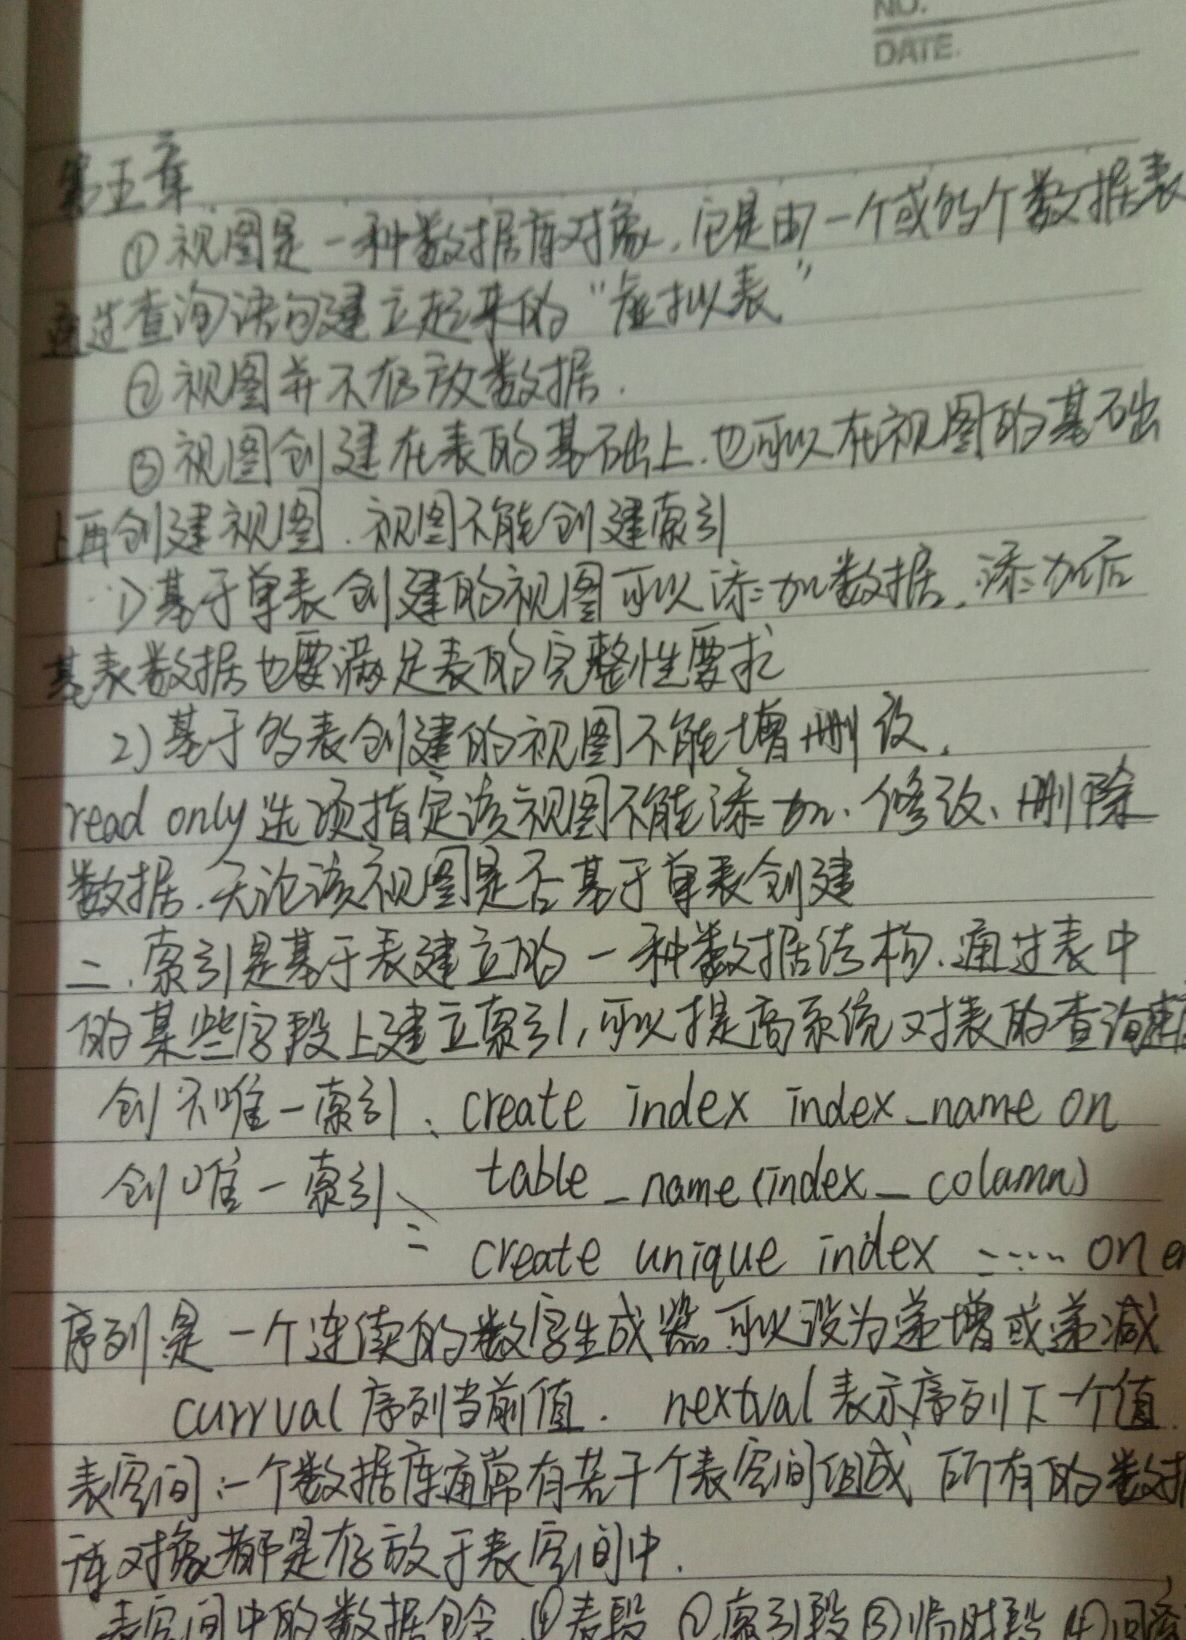 NO.
DATE.
第五章
①视图是一种数据库对象，它是由一个或多个数据表
通过查询语句建立起来的“虚拟表”
②视图并不存放数据.
③视图创建在表的基础上.也可以在视图的基础
上再创建视图.视图不能创建索引
1)基于单表创建的视图可以添加数据,添加后
基表数据也要满足表的完整性要求
2)基于多表创建的视图不能增删改.
read only选项指定该视图不能添加、修改、删除
数据.无论该视图是否基于单表创建
二.索引是基于表建立的一种数据结构.通过表中
的某些字段上建立索引,可以提高系统对表的查询速度
创不唯一索引、create index index_name on
创唯一索引、 table_name(index_colamn)
create unique index ...... on
序列是一个连续的数字生成器.可以设为递增或递减
currval序列当前值. nextval表示序列下一个值.
表空间:一个数据库通常有若干个表空间组成 所有的数据
库对象都是存放于表空间中.
表空间中的数据包含 ①表段 ②索引段 ③临时段 ④回